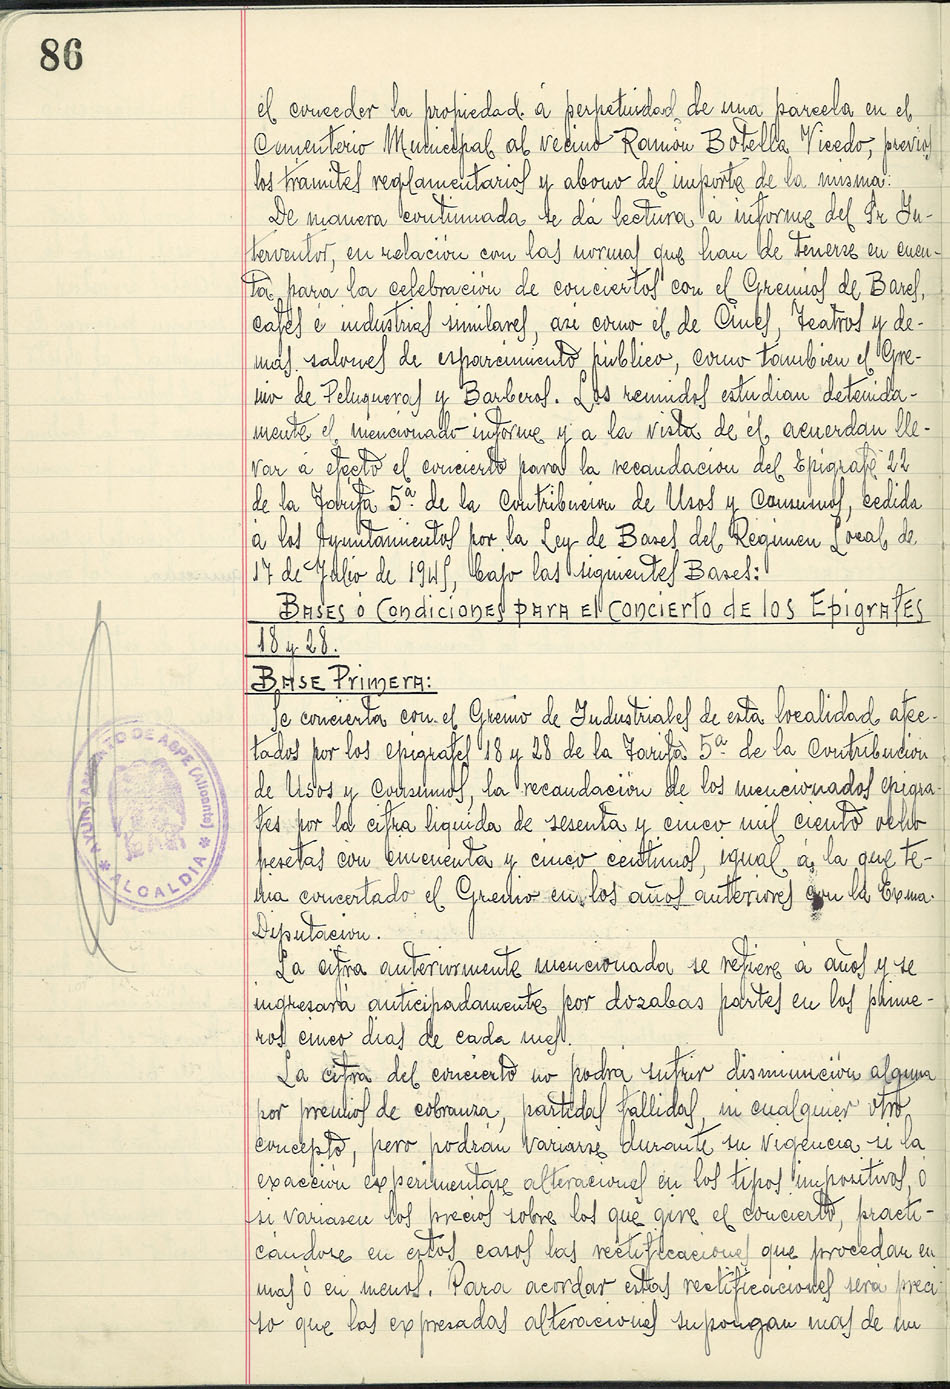 86
el conceder la propiedad á perpetuidad de una parcela en el
Cementerio Municipal al vecino Ramón Botella Vicedo, previos
los tramites reglamentarios y abono del importe de la misma.
De manera continuada se dá lectura á informe del Sr In-
terventor, en relación con las normas que han de tenerse en cuen-
ta para la celebración de conciertos con el Gremios de Bares,
cafés é industrias similares, asi como él de Cines, Teatros y de-
mas salones de esparcimiento público, como tambien el Gre-
mio de Peluqueras y Barberos. Los reunidos estudian detenida-
mente el mencionado informe y a la vista de él acuerdan lle-
var á efecto el concierto para la recaudación del Epigrafe 22
de la Tarifa 5ª de la Contribución de Usos y Consumos, cedida
á los Ayuntamientos por la Ley de Bases del Regimen Local de
17 de Julio de 1945, bajo las siguientes Bases:
BASES ó CONDICIONES PARA El CONCIERTO DE lOS EPIGRAFES
18 y 28.
BASE PRIMERA:
Se concierta con el Gremio de Industriales de esta localidad afec-
tados por los epigrafes 18 y 28 de la Tarifa 5ª de la Contribución
de Usos y Consumos, la recaudación de los mencionados epigra-
fes por la cifra liquida de sesenta y cinco mil ciento ocho
pesetas con cincuenta y cinco centimos, igual á la que te-
nia concertado el Gremio en los años anteriores con la Exma.
Diputación.
La cifra anteriormente mencionada se refiere á años y se
ingresará anticipadamente por dozabas partes en los prime-
ros cinco dias de cada mes.
La cifra del concierto no podrá sufrir disminución alguna
por premios de cobranza, partidas fallidas, ni cualquier otro
concepto, pero podrán variarse durante su vigencia si la
exacción experimentase alteraciones en los tipos impositivos, ó
si variasen los precios sobre los que gire el concierto, practi-
cándose en estos casos las rectificaciones que procedan en
mas ó en menos. Para acordar estas rectificaciones será preci-
so que las expresadas alteraciones supongan mas de un
AYUNTAMIENTO DE ASPE (Alicante)
* ALCALDIA *